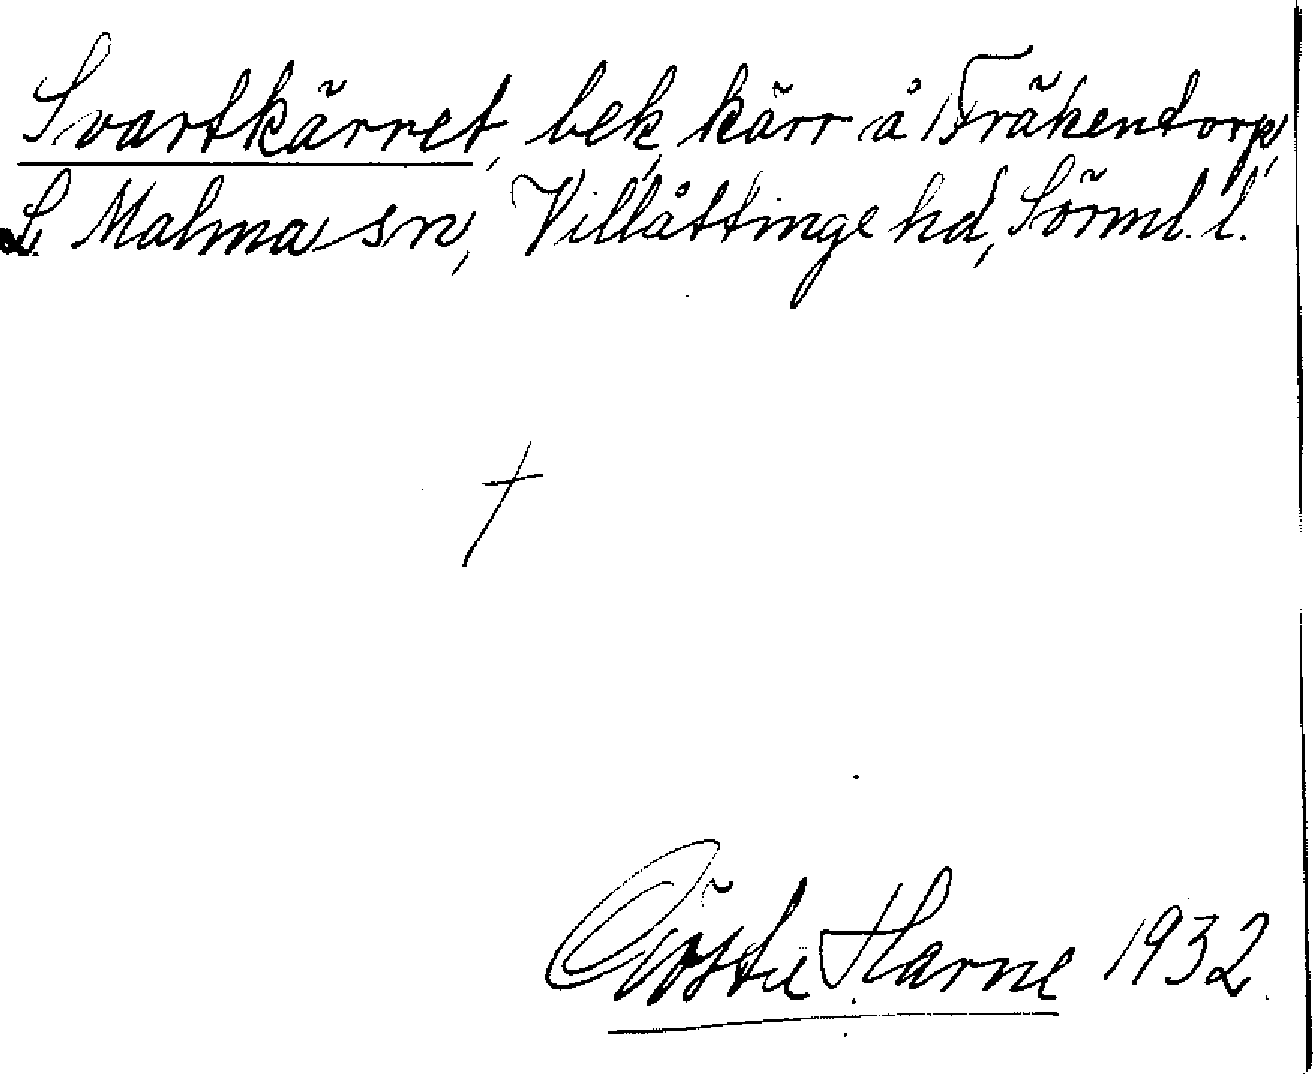 Svartkärret, bek, kärr å Fräkentorp,
L. Malma sn, Villåttinge hd, Sörml. l.
†
Gösta Harne 1932.